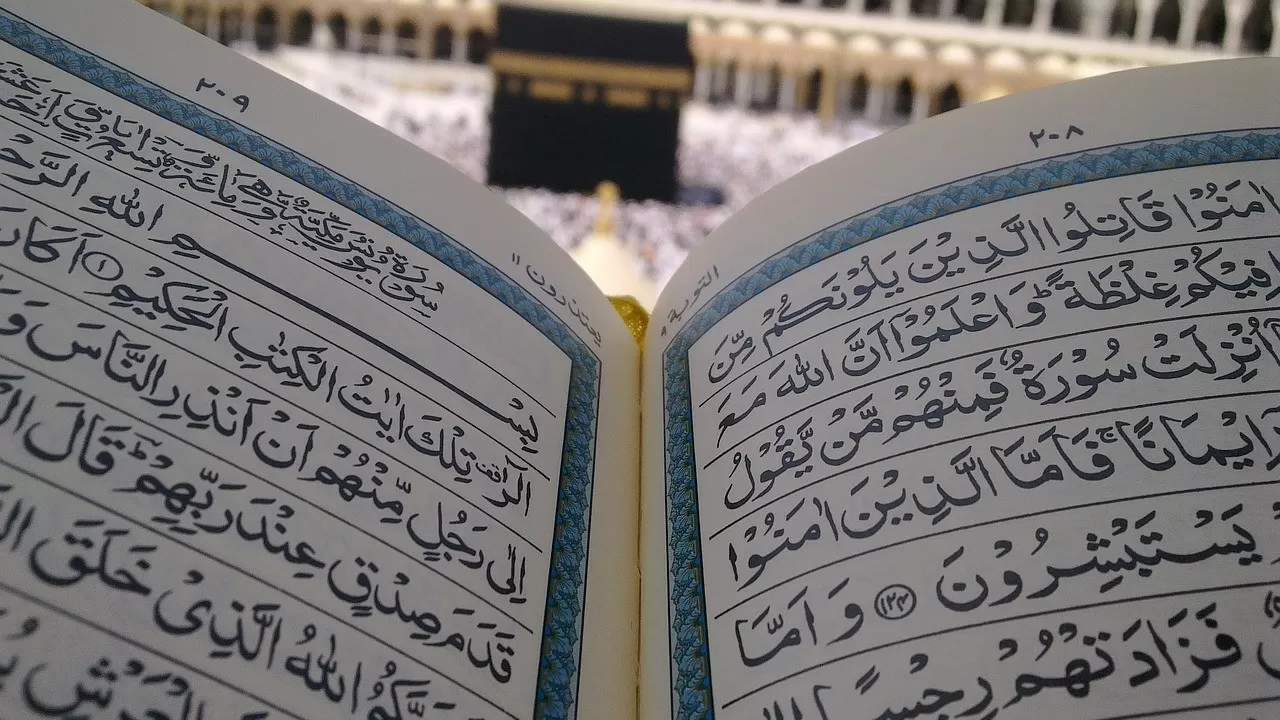 ٢٠٨
التوبة ٩
اٰمَنُوْا قَاتِلُوا الَّذِيْنَ يَلُوْنَكُمْ مِّنَ
فِيْكُمْ غِلْظَةً ؕ وَاعْلَمُوْٓا اَنَّ اللّٰهَ مَعَ
اُنْزِلَتْ سُوْرَةٌ فَمِنْهُمْ مَّنْ يَّقُوْلُ
اِيْمَانًا ۚ فَاَمَّا الَّذِيْنَ اٰمَنُوْا
يَسْتَبْشِرُوْنَ ﴿١٢٤﴾ وَاَمَّا
فَزَادَتْهُمْ رِجْسًا
٢٠٩
يعتذرون ١١
سُوْرَةُ يُوْنُسَ مَكِّيَّةٌ وَّهِيَ مِائَةٌ وَّتِسْعُ اٰيَاتٍ
بِسْمِ اللّٰهِ
الٓرٰ تِلْكَ اٰيٰتُ الْكِتٰبِ الْحَكِيْمِ ﴿١﴾ اَكَانَ
اِلٰى رَجُلٍ مِّنْهُمْ اَنْ اَنْذِرِ النَّاسَ
قَدَمَ صِدْقٍ عِنْدَ رَبِّهِمْ ؕ قَالَ
اللّٰهُ الَّذِيْ خَلَقَ